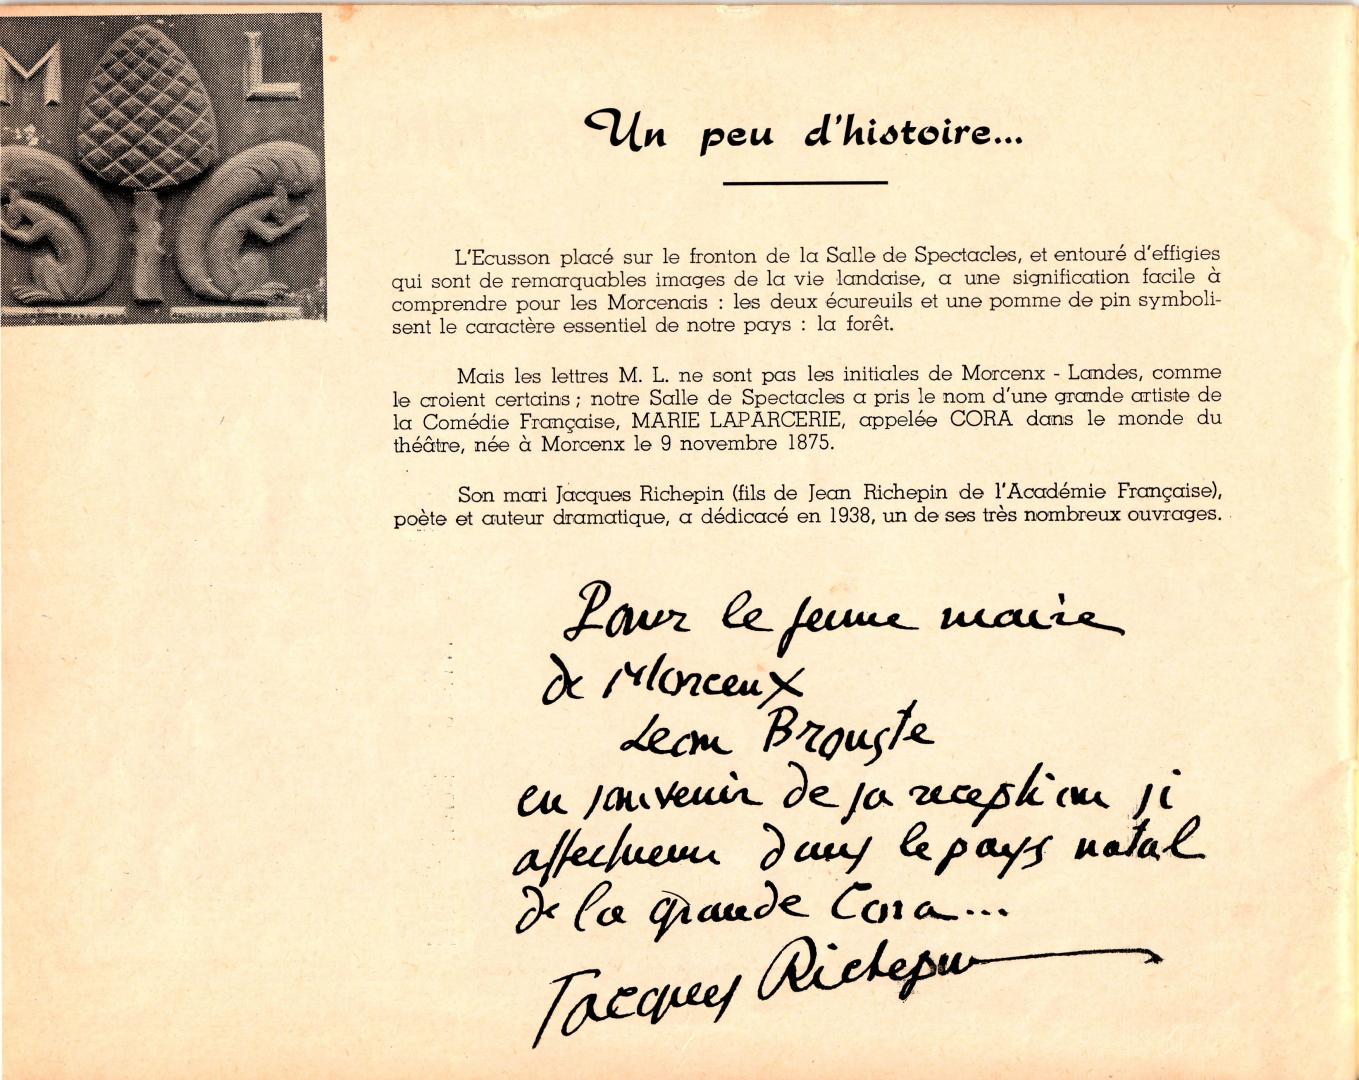 M L
Un peu d'histoire...
L'Ecusson placé sur le fronton de la Salle de Spectacles, et entouré d'effigies
qui sont de remarquables images de la vie landaise, a une signification facile à
comprendre pour les Morcenais : les deux écureuils et une pomme de pin symboli-
sent le caractère essentiel de notre pays : la forêt.
Mais les lettres M. L. ne sont pas les initiales de Morcenx - Landes, comme
le croient certains ; notre Salle de Spectacles a pris le nom d'une grande artiste de
la Comédie Française, MARIE LAPARCERIE, appelée CORA dans le monde du
théâtre, née à Morcenx le 9 novembre 1875.
Son mari Jacques Richepin (fils de Jean Richepin de l'Académie Française),
poète et auteur dramatique, a dédicacé en 1938, un de ses très nombreux ouvrages.
Pour le jeune maire
de Morcenx
Leon Brouste
en souvenir de sa reception si
affectueuse dans le pays natal
de la grande Cora...
Jacques Richepin